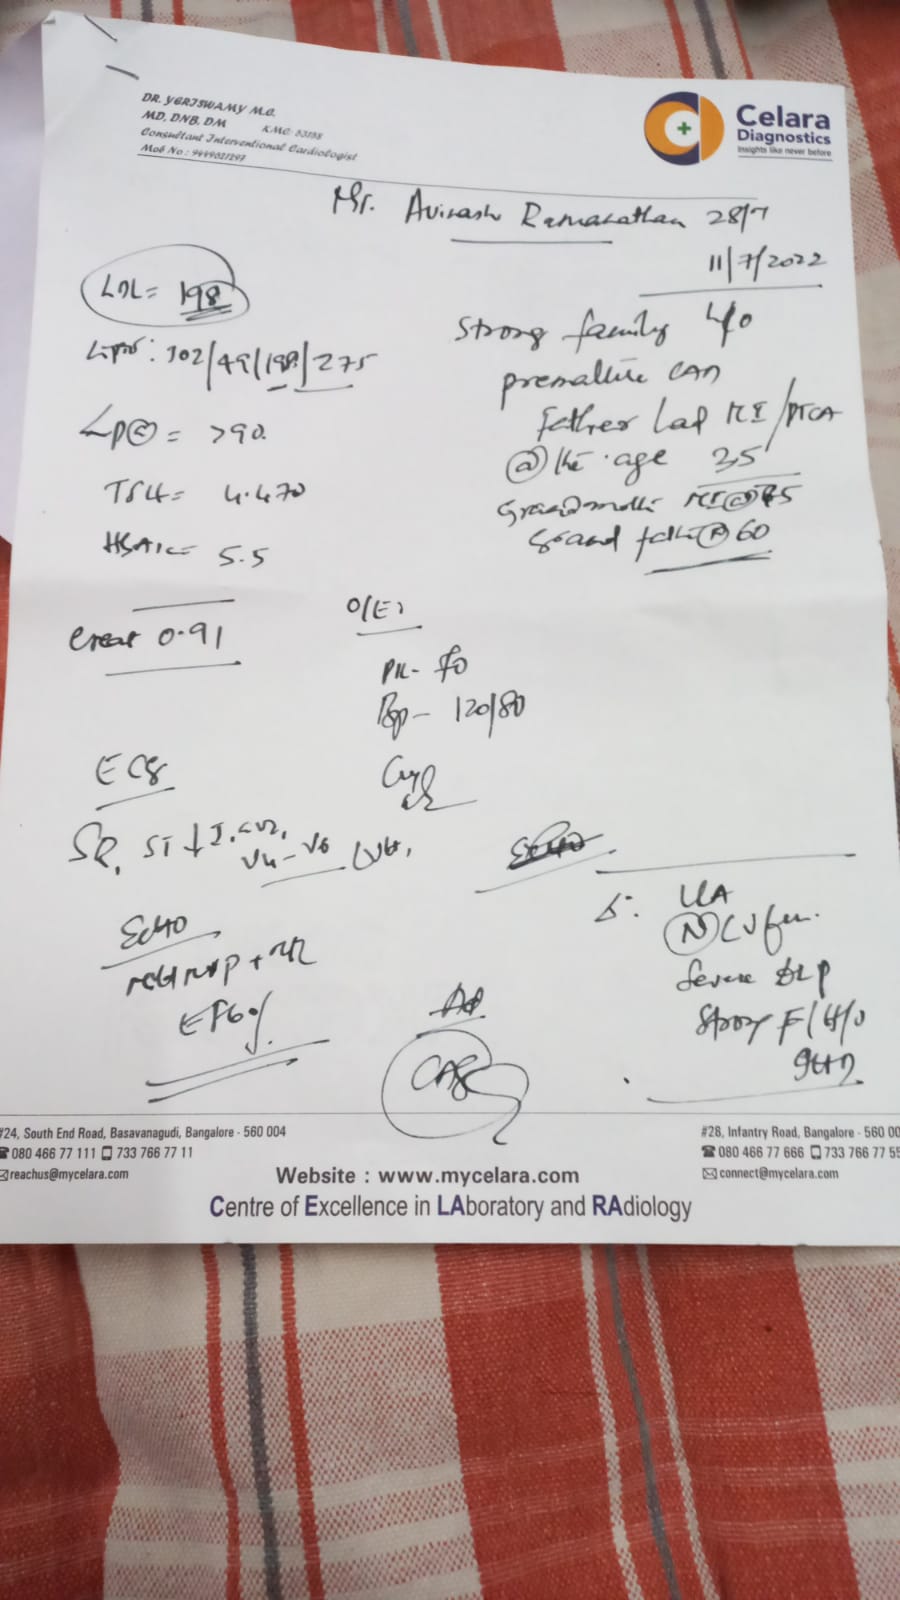 DR. YERISWAMY M.C.
MD, DNB, DM KMC: 83188
Consultant Interventional Cardiologist
Mob No : 9449021297
Celara
Diagnostics
Insights like never before
Mr. Avinash Ramanathan 28/
11/7/2022
LDL = 198
302/49/198/275
LP(a) = >90
TSH = 4.470
HbA1c = 5.5
Creat 0.91
Strong family H/o
premature CAD
Father had MI/PTCA
@ the age 35
Grandmoth MI @
Grand fath @ 60
O/E:
PR- 70
Bp- 120/80
ECG
SR, ST ↓ I, aVL,
V4-V6 LVH,
ECHO
EF 60%
CAG
Δ: USA
(N) LV fun.
Severe DLP
Strong F/H/o
#24, South End Road, Basavanagudi, Bangalore - 560 004
080 466 77 111 733 766 77 11
reachus@mycelara.com
#28, Infantry Road, Bangalore - 560 00
080 466 77 666 733 766 77 55
connect@mycelara.com
Website : www.mycelara.com
Centre of Excellence in LAboratory and RAdiology